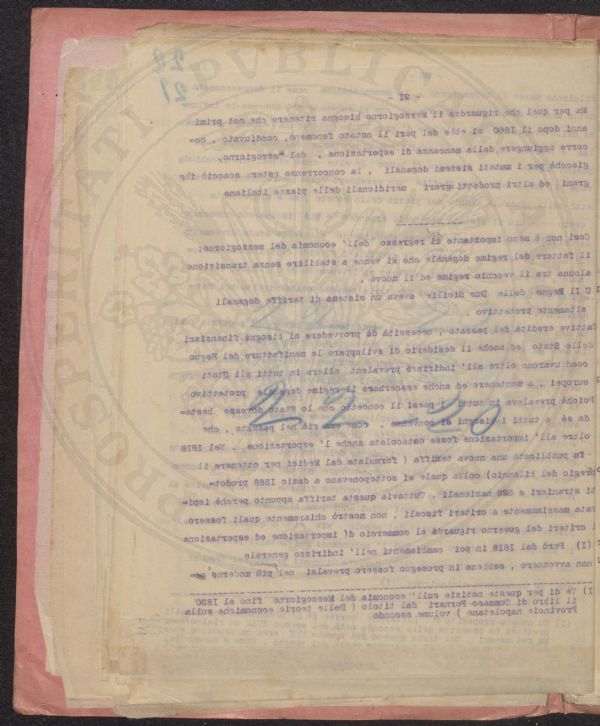 22
21
- 21 -
Ma per quel che riguarda il Mezzogiorno bisogna ritenere che nei primi
anni dopo il 1860 si ebbe del pari il notato fenomeno, coadiuvato, oc-
corre aggiungere dalla mancanza di esportazione , del Mezzogiorno,
giacchè per i mutati sistemi doganali , la concorrenza estera scacciò
grani ed altri prodotti meridionali delle piazze italiane
Così non è meno importante il regresso dell' economia del mezzogiorno:
il fattore del regime doganale che si venne a stabilire senza transizione
alcuna tra il vecchio regime ed il nuovo .
Il Regno delle Due Sicilie aveva un sistema di tariffe doganali
altamente protettivo .
Cattive eredità del passato , necessità di provvedere ai bisogni finanziari
dello Stato ed anche il desiderio di sviluppare le manifatture del Regno
coadiuvarono oltre all' indirizzo prevalente allora in tutti gli Stati
europei , a mantenere ed anche esacerbare il regime doganale protettivo
Poichè prevaleva in tutti i paesi il concetto che lo Stato dovesse basta-
da sè a tutti i bisogni di come già nel passato , che
oltre all' importazione fosse ostacolata anche l' esportazione . Nel 1818
fu pubblicata una nuova tariffa ( formulata dal Medici per ottenere il
pareggio del bilancio) colla quale si sottoponevano a dazio 1388 prodot-
ti stranieri e 658 nazionali . Tuttavia questa tariffa appunto perchè ispi-
rata massimamente a criteri fiscali , non mostrò chiaramente quali fossero
i criteri del governo riguardo al commercio d' importazione ed esportazione
(1) Però dal 1818 in poi cambiamenti nell' indirizzo generale
non avvennero , sebbene in prosieguo fossero prevalsi nel più moderne ge-
1) Ve di per queste notizie sull' economia del Mezzogiorno fino al 1830
il libro di Tommaso Fornari dal titolo ( Delle teorie economiche sulle
Provincie napoletane ) volume secondo